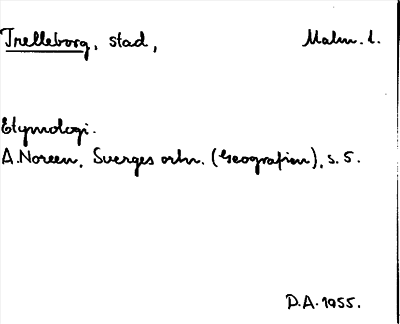 Trelleborg, stad, Malm. l.
Etymologi.
A. Noreen, Sverges ortn. (Geografien), s. 5.
D.A. 1955.